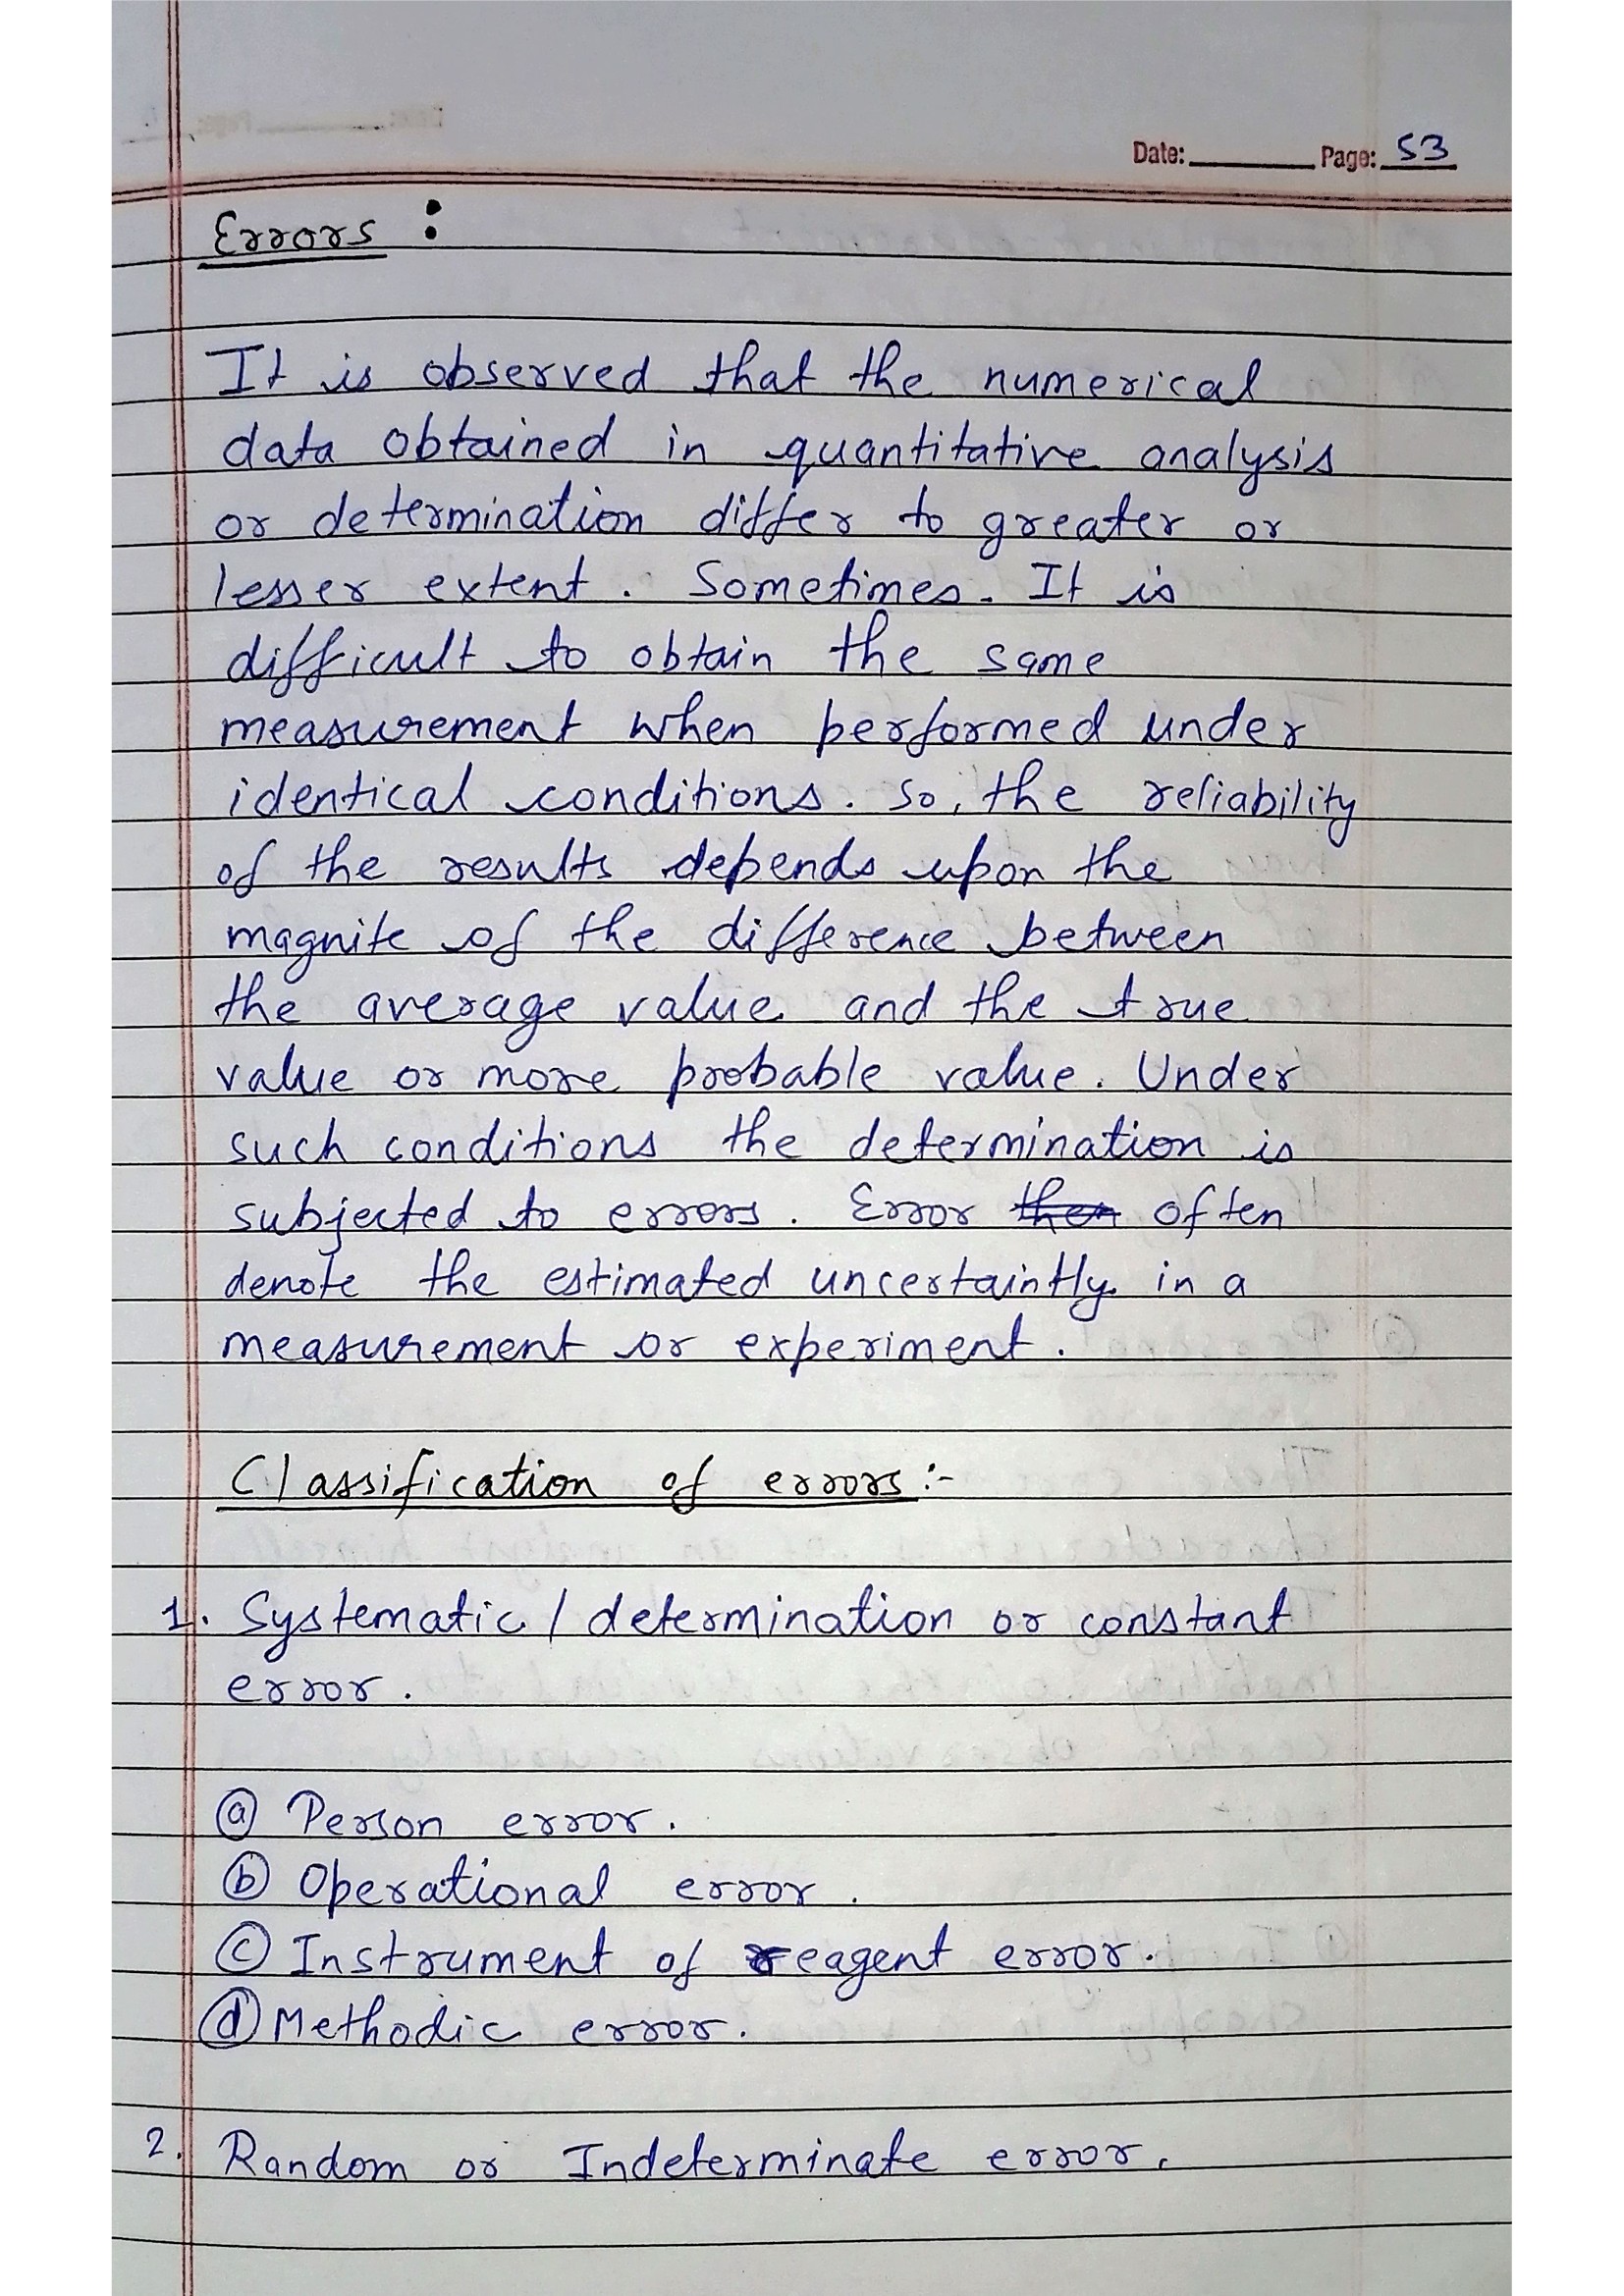 Date: Page: 53
Errors :
It is observed that the numerical
data obtained in quantitative analysis
or determination differ to greater or
lesser extent. Sometimes. It is
difficult to obtain the same
measurement when performed under
identical conditions. So, the reliability
of the results depends upon the
magnite of the difference between
the average value and the true
value or more probable value. Under
such conditions the determination is
subjected to errors. Error then often
denote the estimated uncertaintly in a
measurement or experiment.
Classification of errors :-
1. Systematic / determination or constant
error.
ⓐ Person error.
ⓑ Operational error.
ⓒ Instrument of reagent error.
ⓓ Methodic error.
2. Random or Indeterminate error.